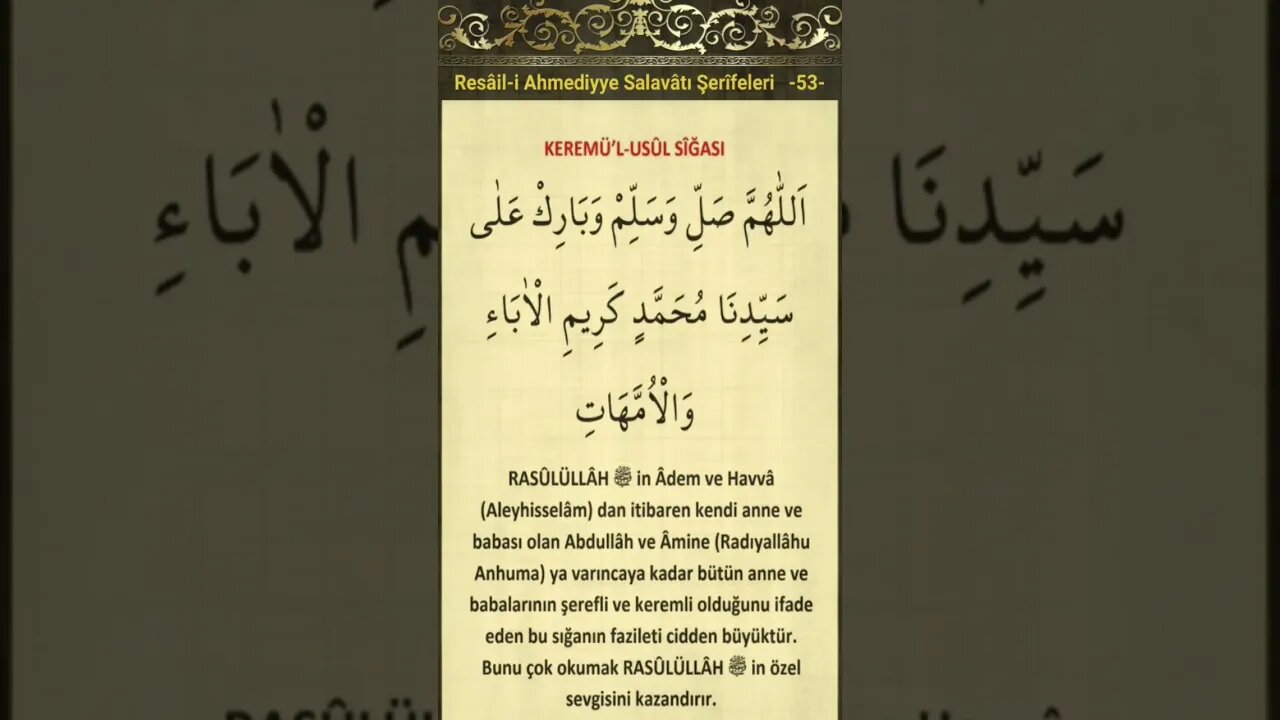 Resâil-i Ahmediyye Salavâtı Şerîfeleri -53-
KEREMÜ'L-USÛL SÎĞASI
اَللّٰهُمَّ صَلِّ وَسَلِّمْ وَبَارِكْ عَلٰى
سَيِّدِنَا مُحَمَّدٍ كَرِيمِ الْاٰبَاءِ
وَالْاُمَّهَاتِ
RASÛLÜLLÂH ﷺ in Âdem ve Havvâ
(Aleyhisselâm) dan itibaren kendi anne ve
babası olan Abdullâh ve Âmine (Radıyallâhu
Anhuma) ya varıncaya kadar bütün anne ve
babalarının şerefli ve keremli olduğunu ifade
eden bu sığanın fazileti cidden büyüktür.
Bunu çok okumak RASÛLÜLLÂH ﷺ in özel
sevgisini kazandırır.